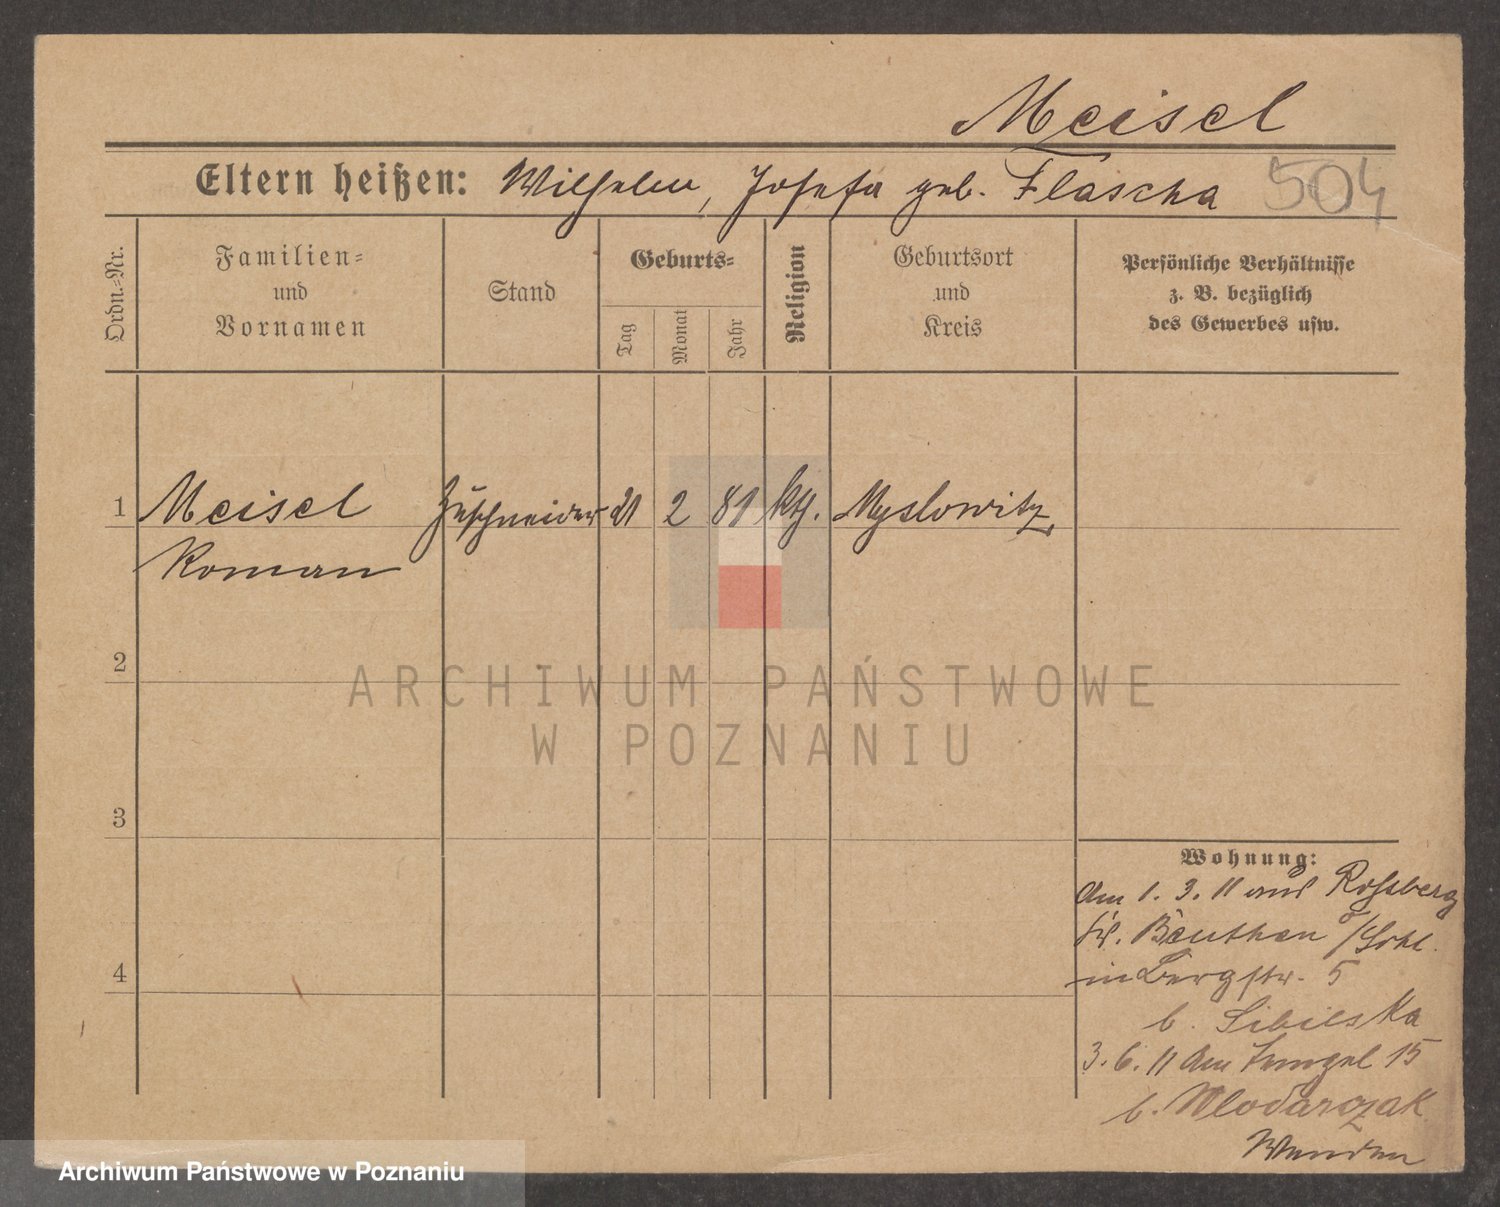 Meisel
Eltern heißen: Wilhelm, Josefa geb. Flascha 504
Ordn.-Nr.
Familien-
und
Vornamen
Stand
Geburts-
Tag
Monat
Jahr
Religion
Geburtsort
und
Kreis
Persönliche Verhältnisse
z. B. bezüglich
des Gewerbes usw.
1 Meisel Zuschneider 21 2 81 kth. Myslowitz
Roman
2
ARCHIWUM PAŃSTWOWE
W POZNANIU
3
Wohnung:
Am 1. 3. 11 aus Rossberg
Kr. Beuthen o/Schl.
in Bergstr. 5
b. Sibilska
3. 6. 11 Am Tempel 15
b. Wlodarczak
4
Wenden
Archiwum Państwowe w Poznaniu